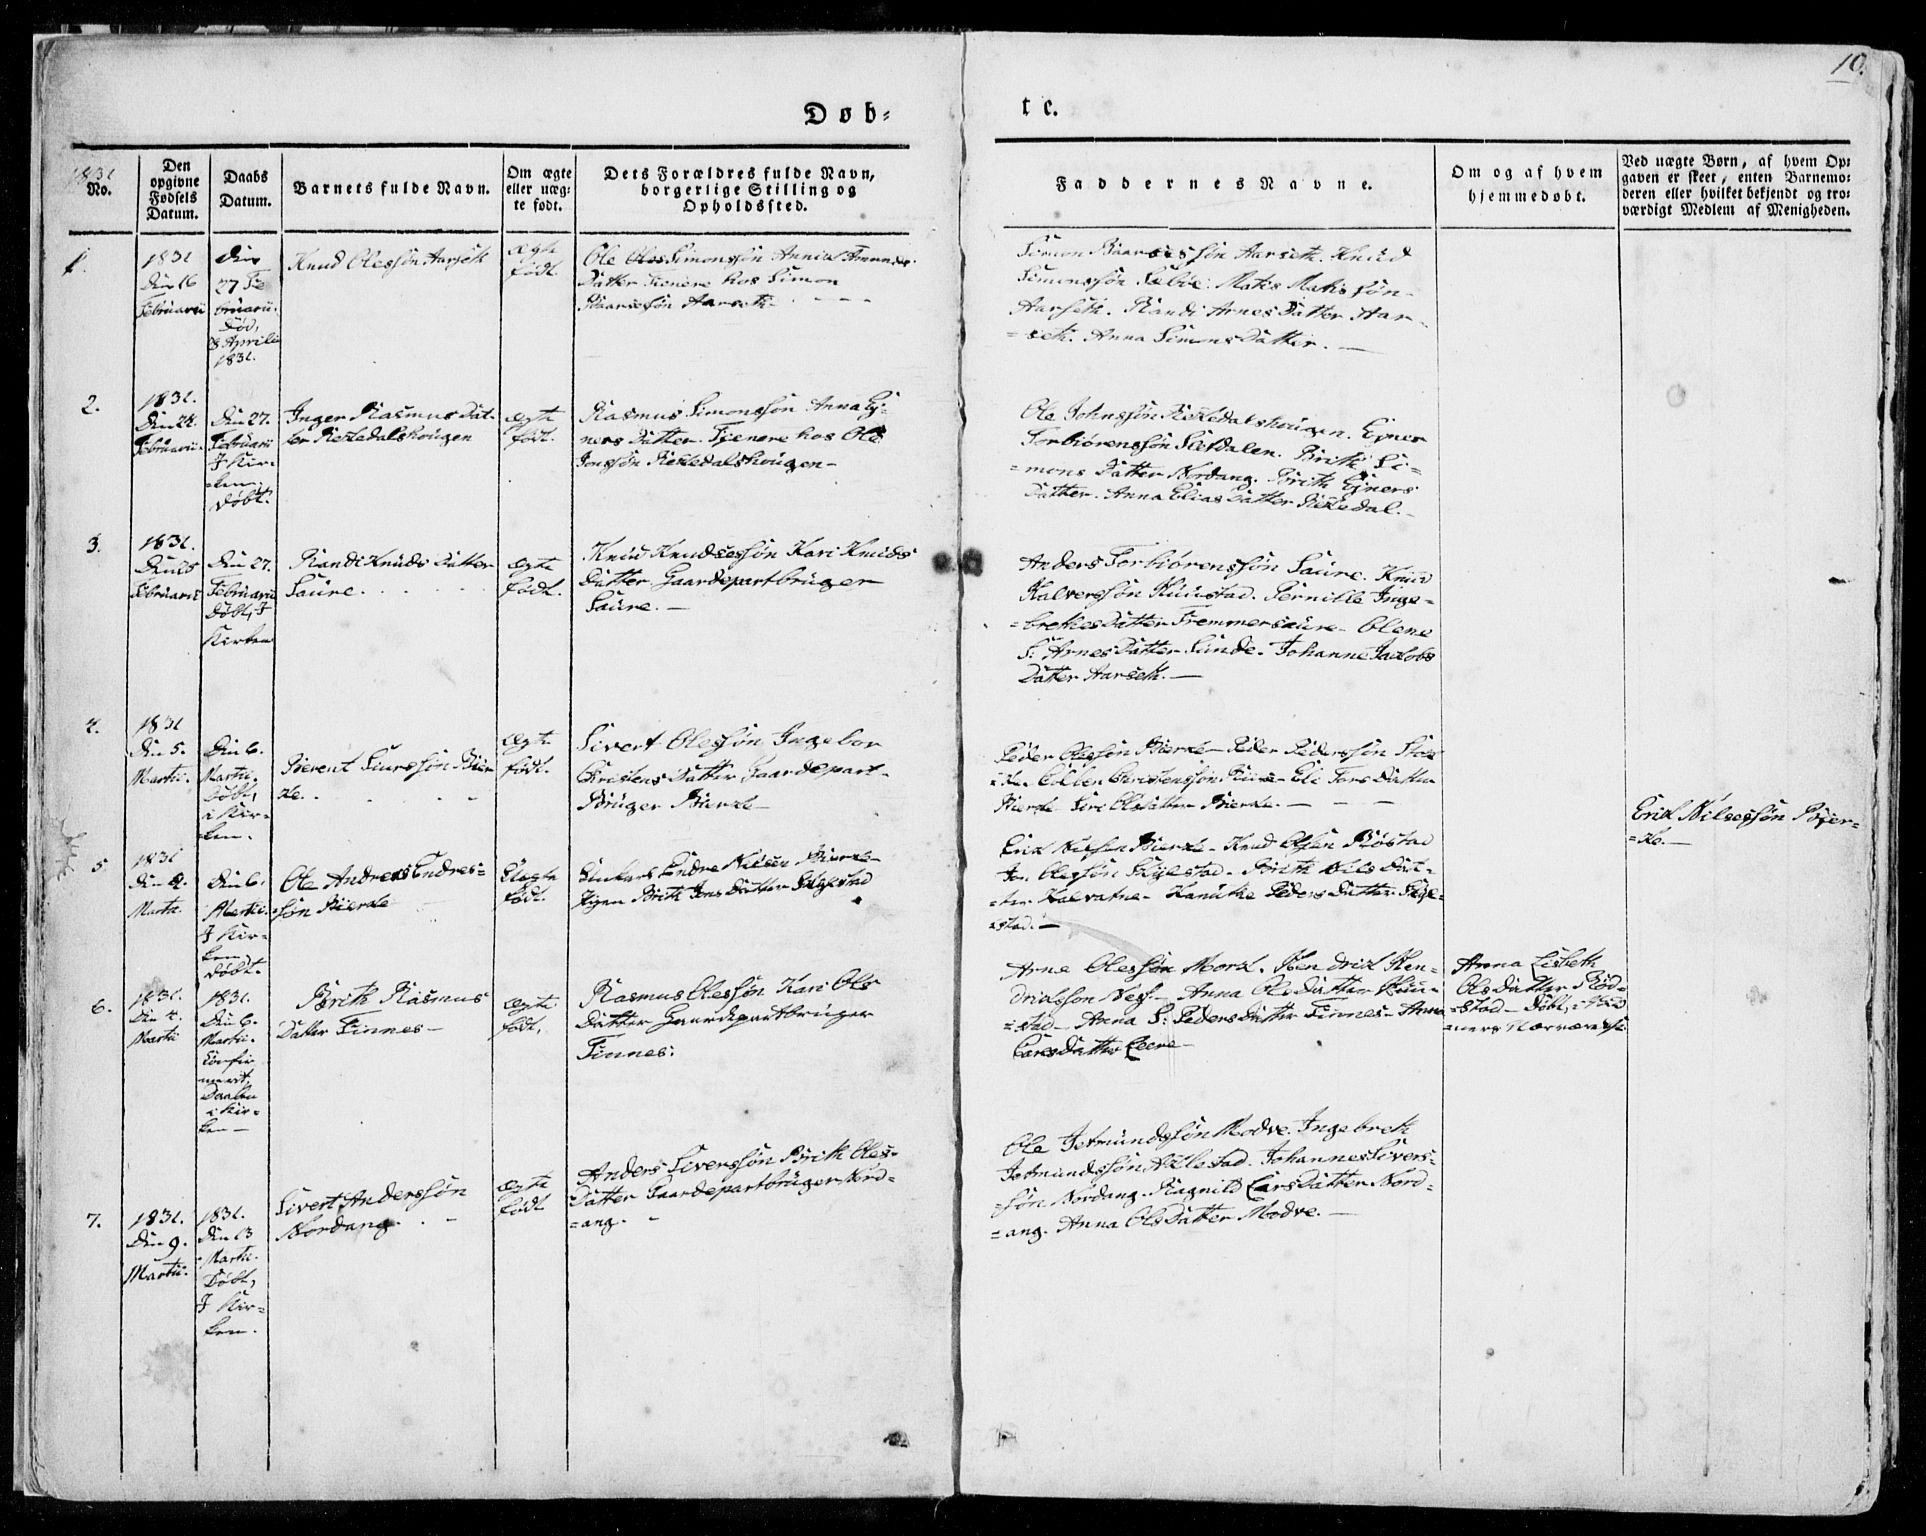 10.
Døb-
te.
1831
No.
Den
opgivne
Fødsels
Datum.
Daabs
Datum.
Barnets fulde Navn.
Om ægte
eller uæg-
te født.
Dets Forældres fulde Navn,
borgerlige Stilling og
Opholdssted.
Faddernes Navne.
Om og af hvem
hjemmedøbt.
Ved uægte Børn, af hvem Op-
gaven er skeet, enten Barnemo-
deren eller hvilket bekjendt og tro-
værdigt Medlem af Menigheden.
1.
1831
Den 16
Februarii
Den
27 Fe
bruarii.
Død,
8 Aprilii
1831.
Knud Olessøn Aarseth
ægte
født.
Ole Oles Simonssøn Annid Amunds
Datter Tienere hos Simon
Baarsessøn Aarseth
Simon Baarsessøn Aarseth. Knud
Simonssøn Sæbøe. Matis Matissøn
Aarseth. Randi Arnes Datter Aar-
=seth. Anna Simons Datter.
2.
1831.
Den 24.
Februarii
Den 27.
Februarii
I Kir-
=ken
døbt.
Inger Rasmus Dat-
ter Rekkedalshougen
ægte
født.
Rasmus Simonssøn Anna Ej-
ners Datter. Tjenere hos Ole
Jonssøn Rekkedalshougen
Ole Johnssøn Rekkedalshougen. Ejner
Torbiørenssøn Sletdalen. Brith Si-
=mons Datter Nordang. Brith Ejners
Datter. Anna Elias Datter Rekkedal.
3.
1831.
Den 25
Februarii
Den 27.
Februarii
Døbt, I
Kirken
Randi Knuds Datter
Saure.
ægte
født.
Knud Knudsessøn Kari Knuds
Datter Gaardepartbruger
Saure.
Anders Torbiørenssøn Saure. Knud
Halverssøn Riiestad. Pernille Inge-
=brethes Datter Fremmersaure. Olene
S: Arnes Datter Sunde. Johanne Jacobs
Datter Aarseth.
4.
1831
Den 5.
Martii.
Den 6.
Martii.
Døbt,
i Kir-
=ken.
Berent Siverssøn Bier
ke.
ægte
født.
Sivert Olessøn Ingebor
Christens Datter Gaardepart-
Bruger Bierke
Peder Olessøn Bierke Peder Pederssøn
Christenssøn Eli Tores Datter
Bierke Siri Olsdatter Bierke.
5
1831
Den 2.
Martii.
Den 6.
Martii.
I Kir-
ken
døbt.
Ole Andreas Endres-
=søn Bierke
Uægte
født.
Unkarl Endre Nilsen Bierke
Pigen Brith Jens Datter Skylstad
Erik Nilsen Bierke. Knud Olsen Røstad
Jon Olessøn Skylstad. Brith Nils Dat-
=ter Kalvatne. Hanükke Peders Datter Skyl-
=stad.
Erik Nilsessøn Bjer-
=ke.
6.
1831.
Den 4.
Martii
1831.
Den 6.
Martii.
Confir
mert
Daaben
i Kir-
ken
Brith Rasmus
Datter Finnes
ægte
født.
Rasmus Olessøn Kari Ols
Datter Gaardepartbruger
Finnes:
Arne Olessøn Mork. Hendrik Hen-
drikssøn Nes. Anna Ols Datter
=stad. Anna S: Peders Datter Finnes. Anna
Lars Datter Leere
Anna Lisbeth
Ols Datter Rød-
=stad. Døbt, i
ners Nærværelse
7.
1831.
Den 9.
Martii.
1831.
Den 13
Martii.
Døbt,
I Kir-
ken.
Sivert Anderssøn
Nordang.
ægte
født
Anders Siverssøn Brith Oles-
Datter Gaardepartbruger Nord-
=ang.
Ole Jetmundssøn Modve. Ingebreth
Jetmundssøn Aklestad. Johannes Sivers-
søn Nordang. Ragnild Lars Datter Nord-
=ang. Anna Ols Datter Modve.